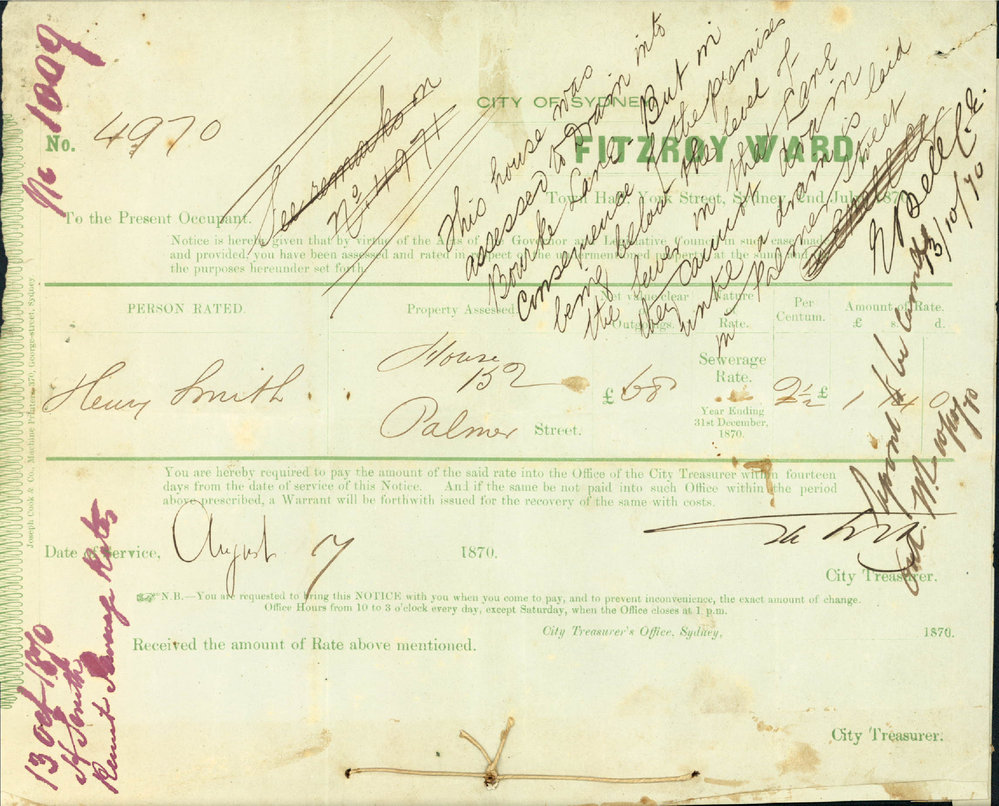 No 1009
CITY OF SYDNEY
No. 4970
FITZROY WARD
Town Hall, York Street, Sydney, 2nd July, 187
See remarks on
No. 4971
This house was
assessed to drain into
Bourke Lane But in
consequence of the premises
being below the level of
the sewer in that Lane
they cannot drain
until a drain is laid
in Palmer Street
E Bell C.E.
13/10/70
To the Present Occupant.
Notice is hereby given that by virtue of the Acts of the Governor and Legislative Council in such case made
and provided, you have been assessed and rated in respect of the undermentioned property at the sum and
the purposes hereunder set forth
PERSON RATED.
Property Assessed.
Net value clear
Outgoings.
Nature
Rate.
Per
Centum.
Amount of Rate.
£ s. d.
Henry Smith
House
132
Palmer Street.
£ 68
Sewerage
Rate.
Year Ending
31st December,
1870.
2½
£ 1 14 0
You are hereby required to pay the amount of the said rate into the Office of the City Treasurer within fourteen
days from the date of service of this Notice. And if the same be not paid into such Office within the period
above prescribed, a Warrant will be forthwith issued for the recovery of the same with costs.
Date of Service, August 17 1870.
City Treasurer.
N.B.—You are requested to bring this NOTICE with you when you come to pay, and to prevent inconvenience, the exact amount of change.
Office Hours from 10 to 3 o'clock every day, except Saturday, when the Office closes at 1 p.m.
City Treasurer's Office, Sydney, 1870.
Received the amount of Rate above mentioned.
City Treasurer.
Joseph Cook & Co., Machine Printers, 370, George-street, Sydney
13 Oct 1870
H Smith
Remit Sewerage Rates